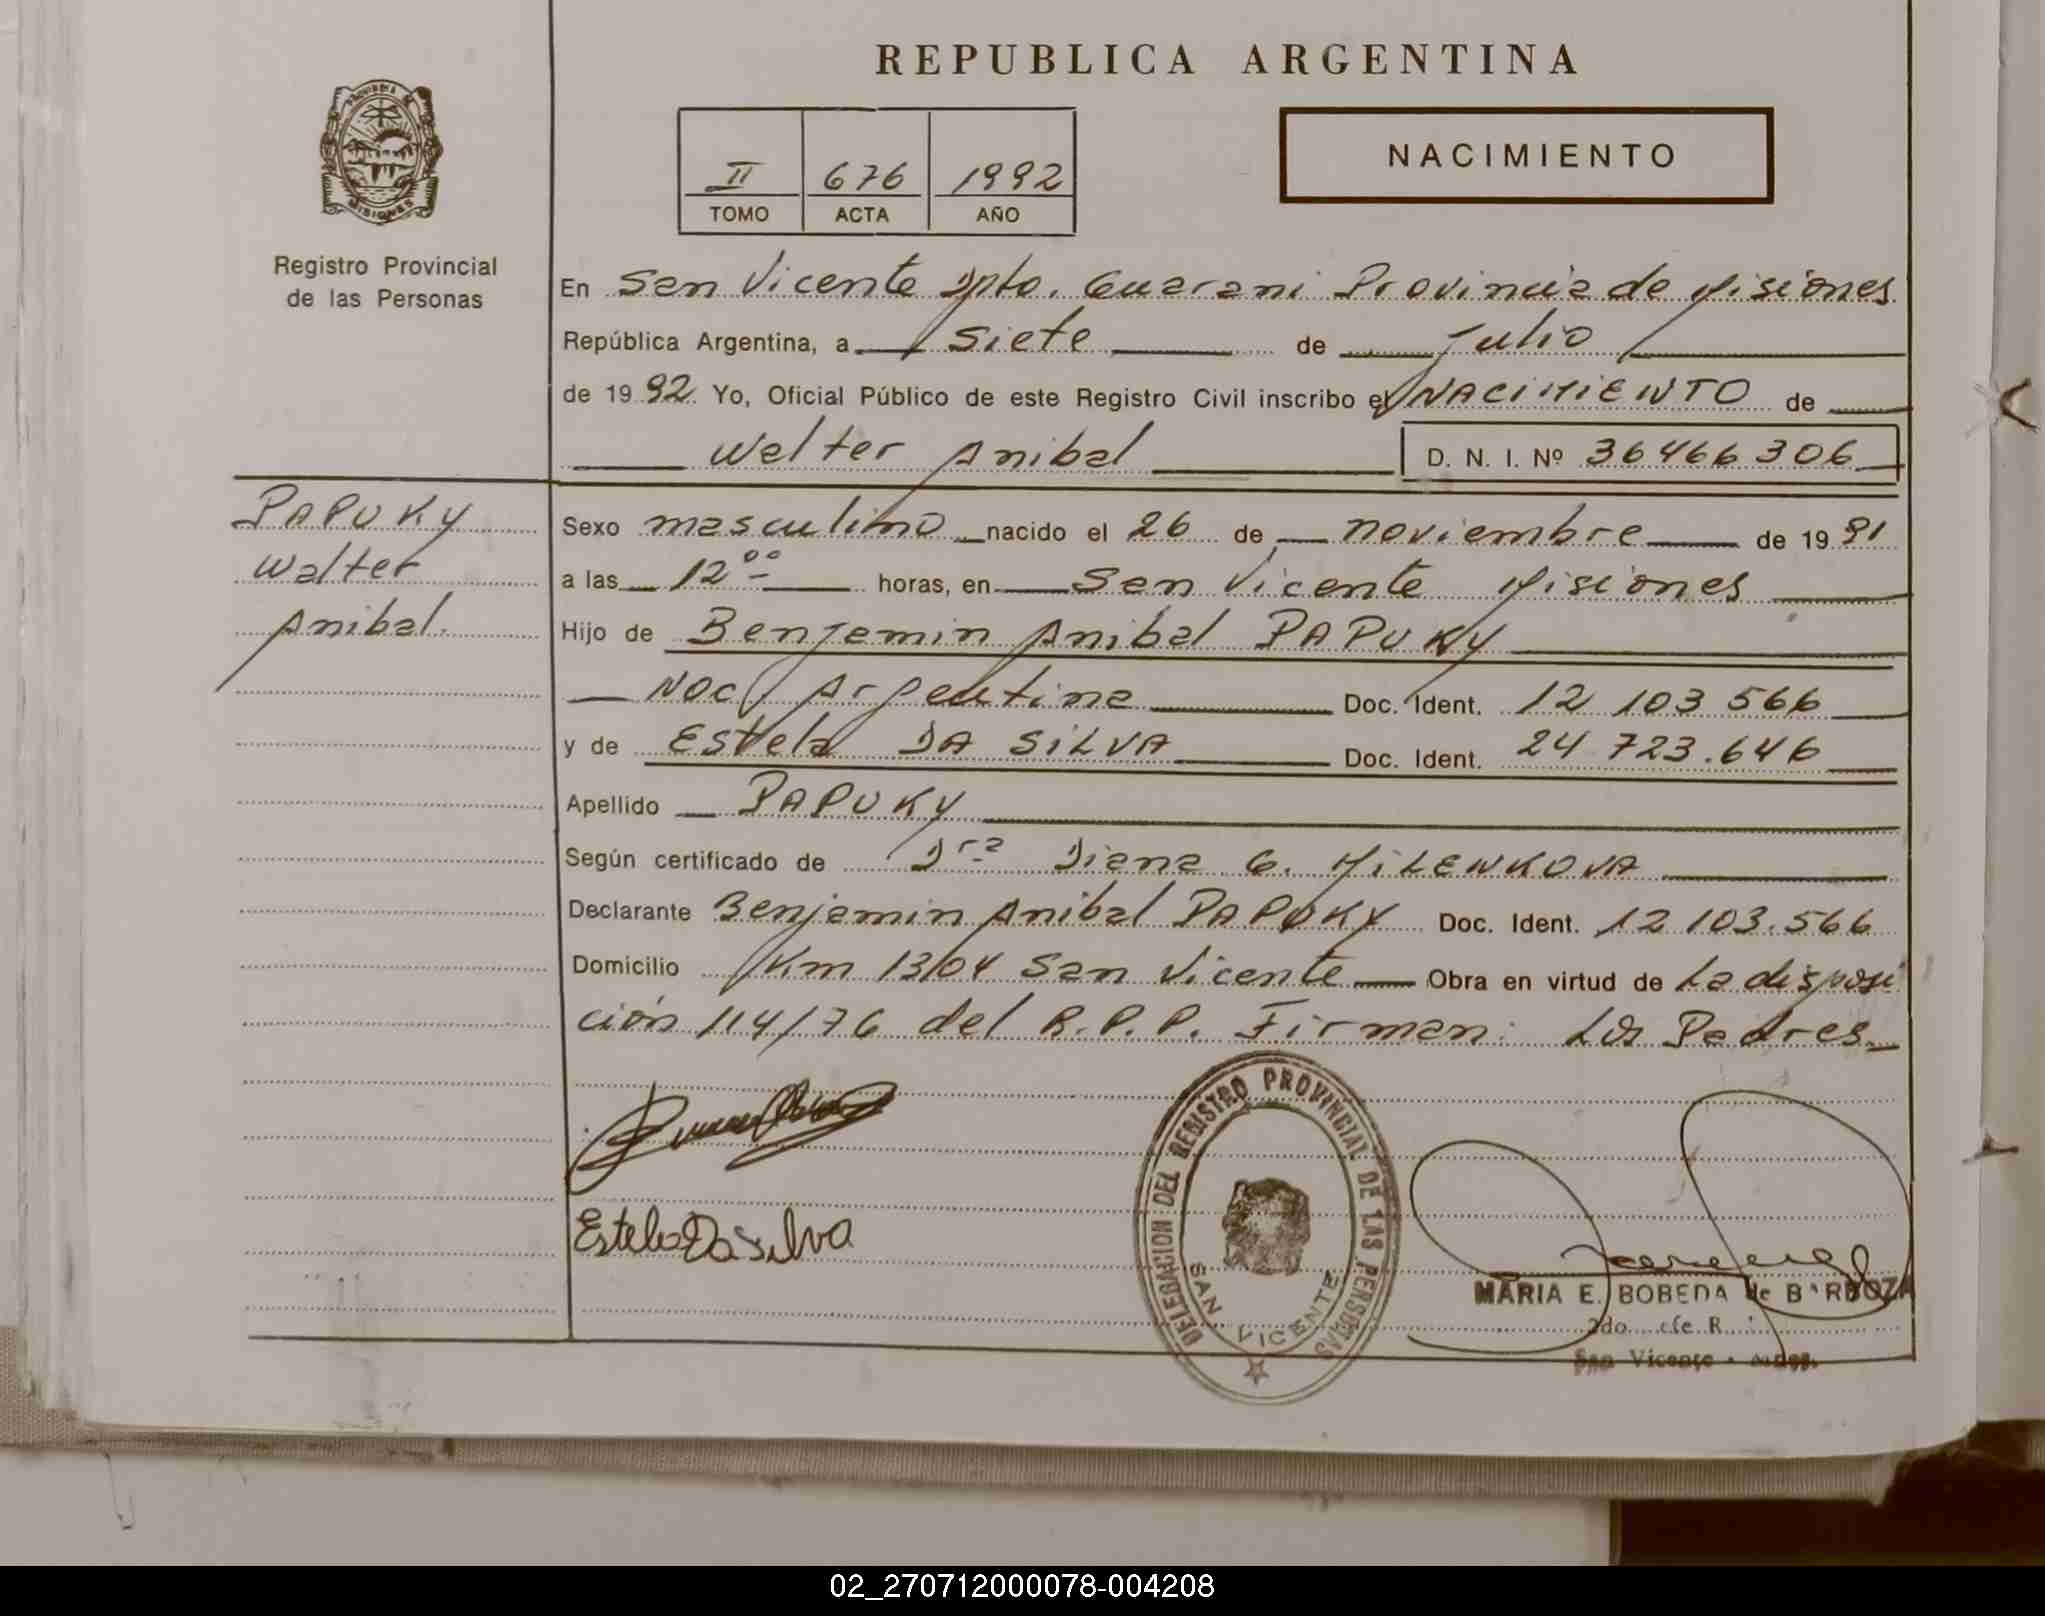 REPUBLICA ARGENTINA
PROVINCIA DE
MISIONES
Registro Provincial
de las Personas
II 676 1992
TOMO ACTA AÑO
NACIMIENTO
En San Vicente Dpto. Guarani Provincia de Misiones
República Argentina, a siete de julio
de 1992 Yo, Oficial Público de este Registro Civil inscribo el NACIMIENTO de
Walter Anibal D. N. I. Nº 36466306
PAPUKY
Walter
Anibal.
Sexo masculino nacido el 26 de noviembre de 1991
a las 12⁰⁰ horas, en San Vicente Misiones
Hijo de Benjamin Anibal PAPUKY
Nac. Argentina Doc. Ident. 12 103 566
y de Estela DA SILVA Doc. Ident. 24 723.646
Apellido PAPUKY
Según certificado de Dra Diana G. MILENKOVA
Declarante Benjamin Anibal PAPUKY Doc. Ident. 12 103.566
Domicilio Km 1304 San Vicente Obra en virtud de La disposi
ción 114/76 del R.P.P. Firman: Los Padres
Estela Da Silva
DELEGACION DEL REGISTRO PROVINCIAL DE LAS PERSONAS
SAN VICENTE
MARIA E. BOBEDA de BARBOZA
2do. Jefe R.
San Vicente - Mnes.
02_270712000078-004208